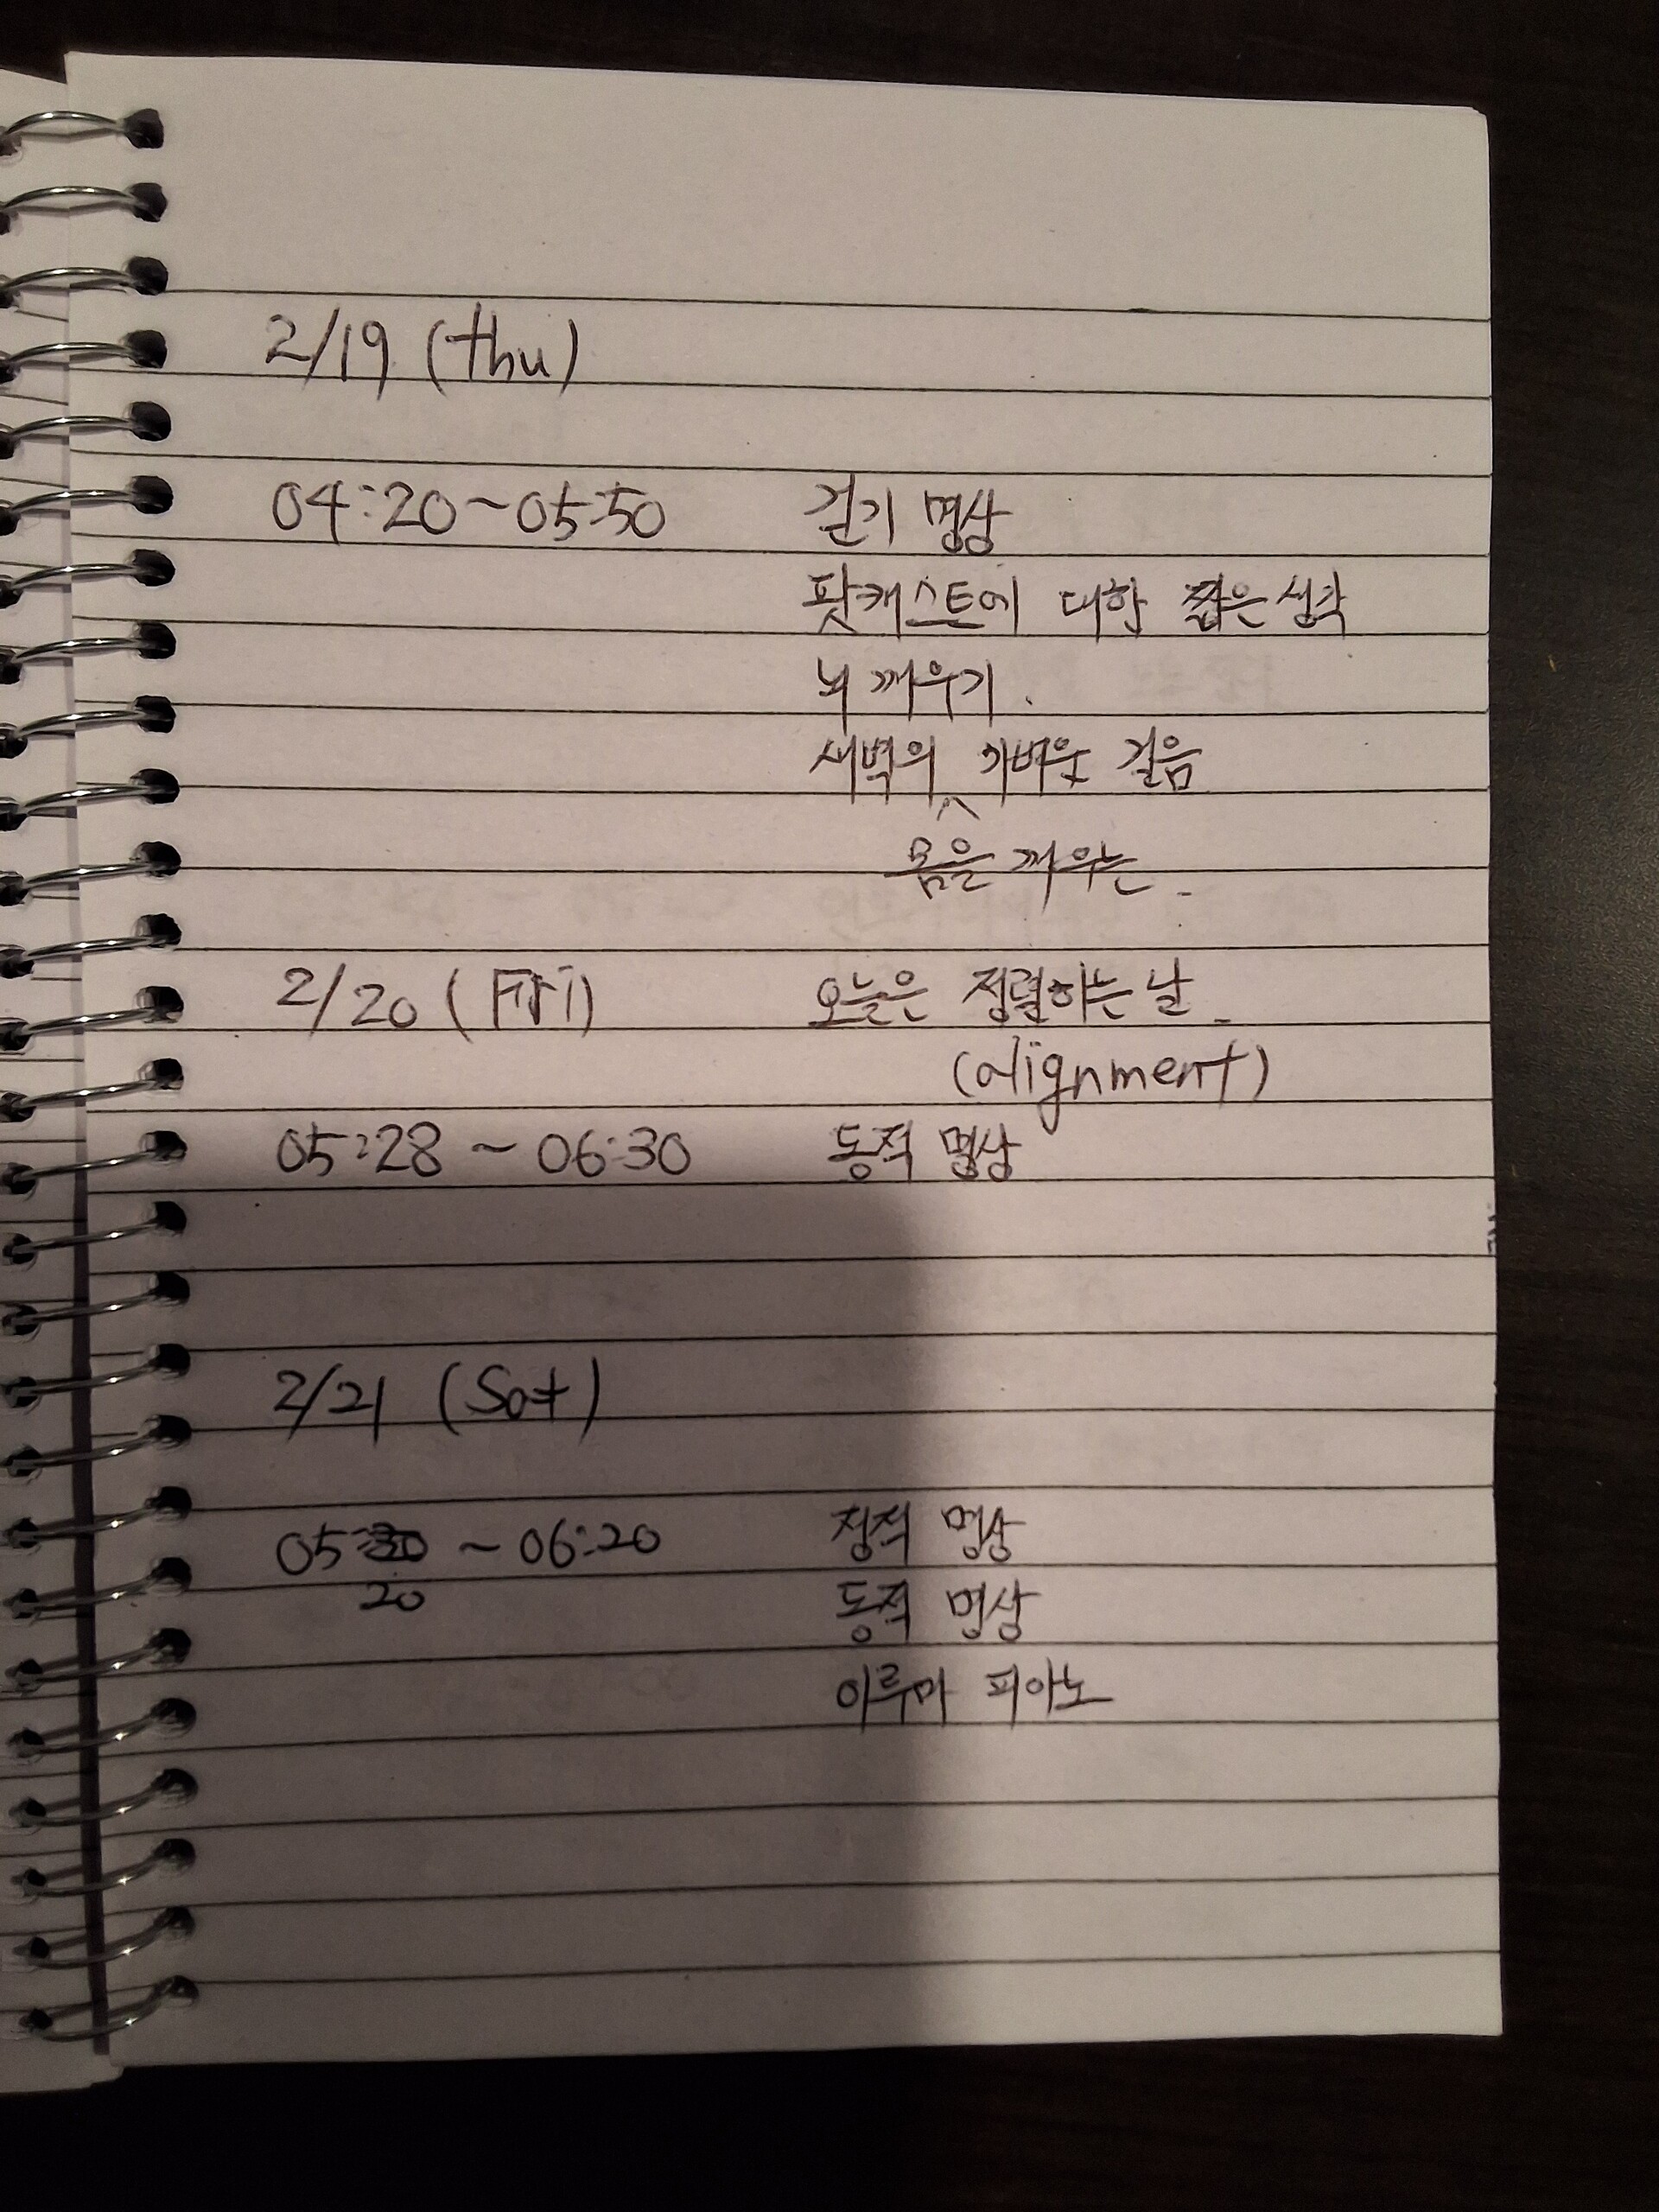 2/19 (thu)
04:20~05:50 걷기 명상
팟캐스트에 대한 짧은 생각
뇌 깨우기.
새벽의 ^ 가벼운 걸음
몸을 깨우는.
2/20 (Fri) 오늘은 정렬하는 날.
(alignment)
05:28 ~ 06:30 동적 명상
2/21 (Sat)
05:30 ~ 06:20 정적 명상
20 동적 명상
이루마 피아노